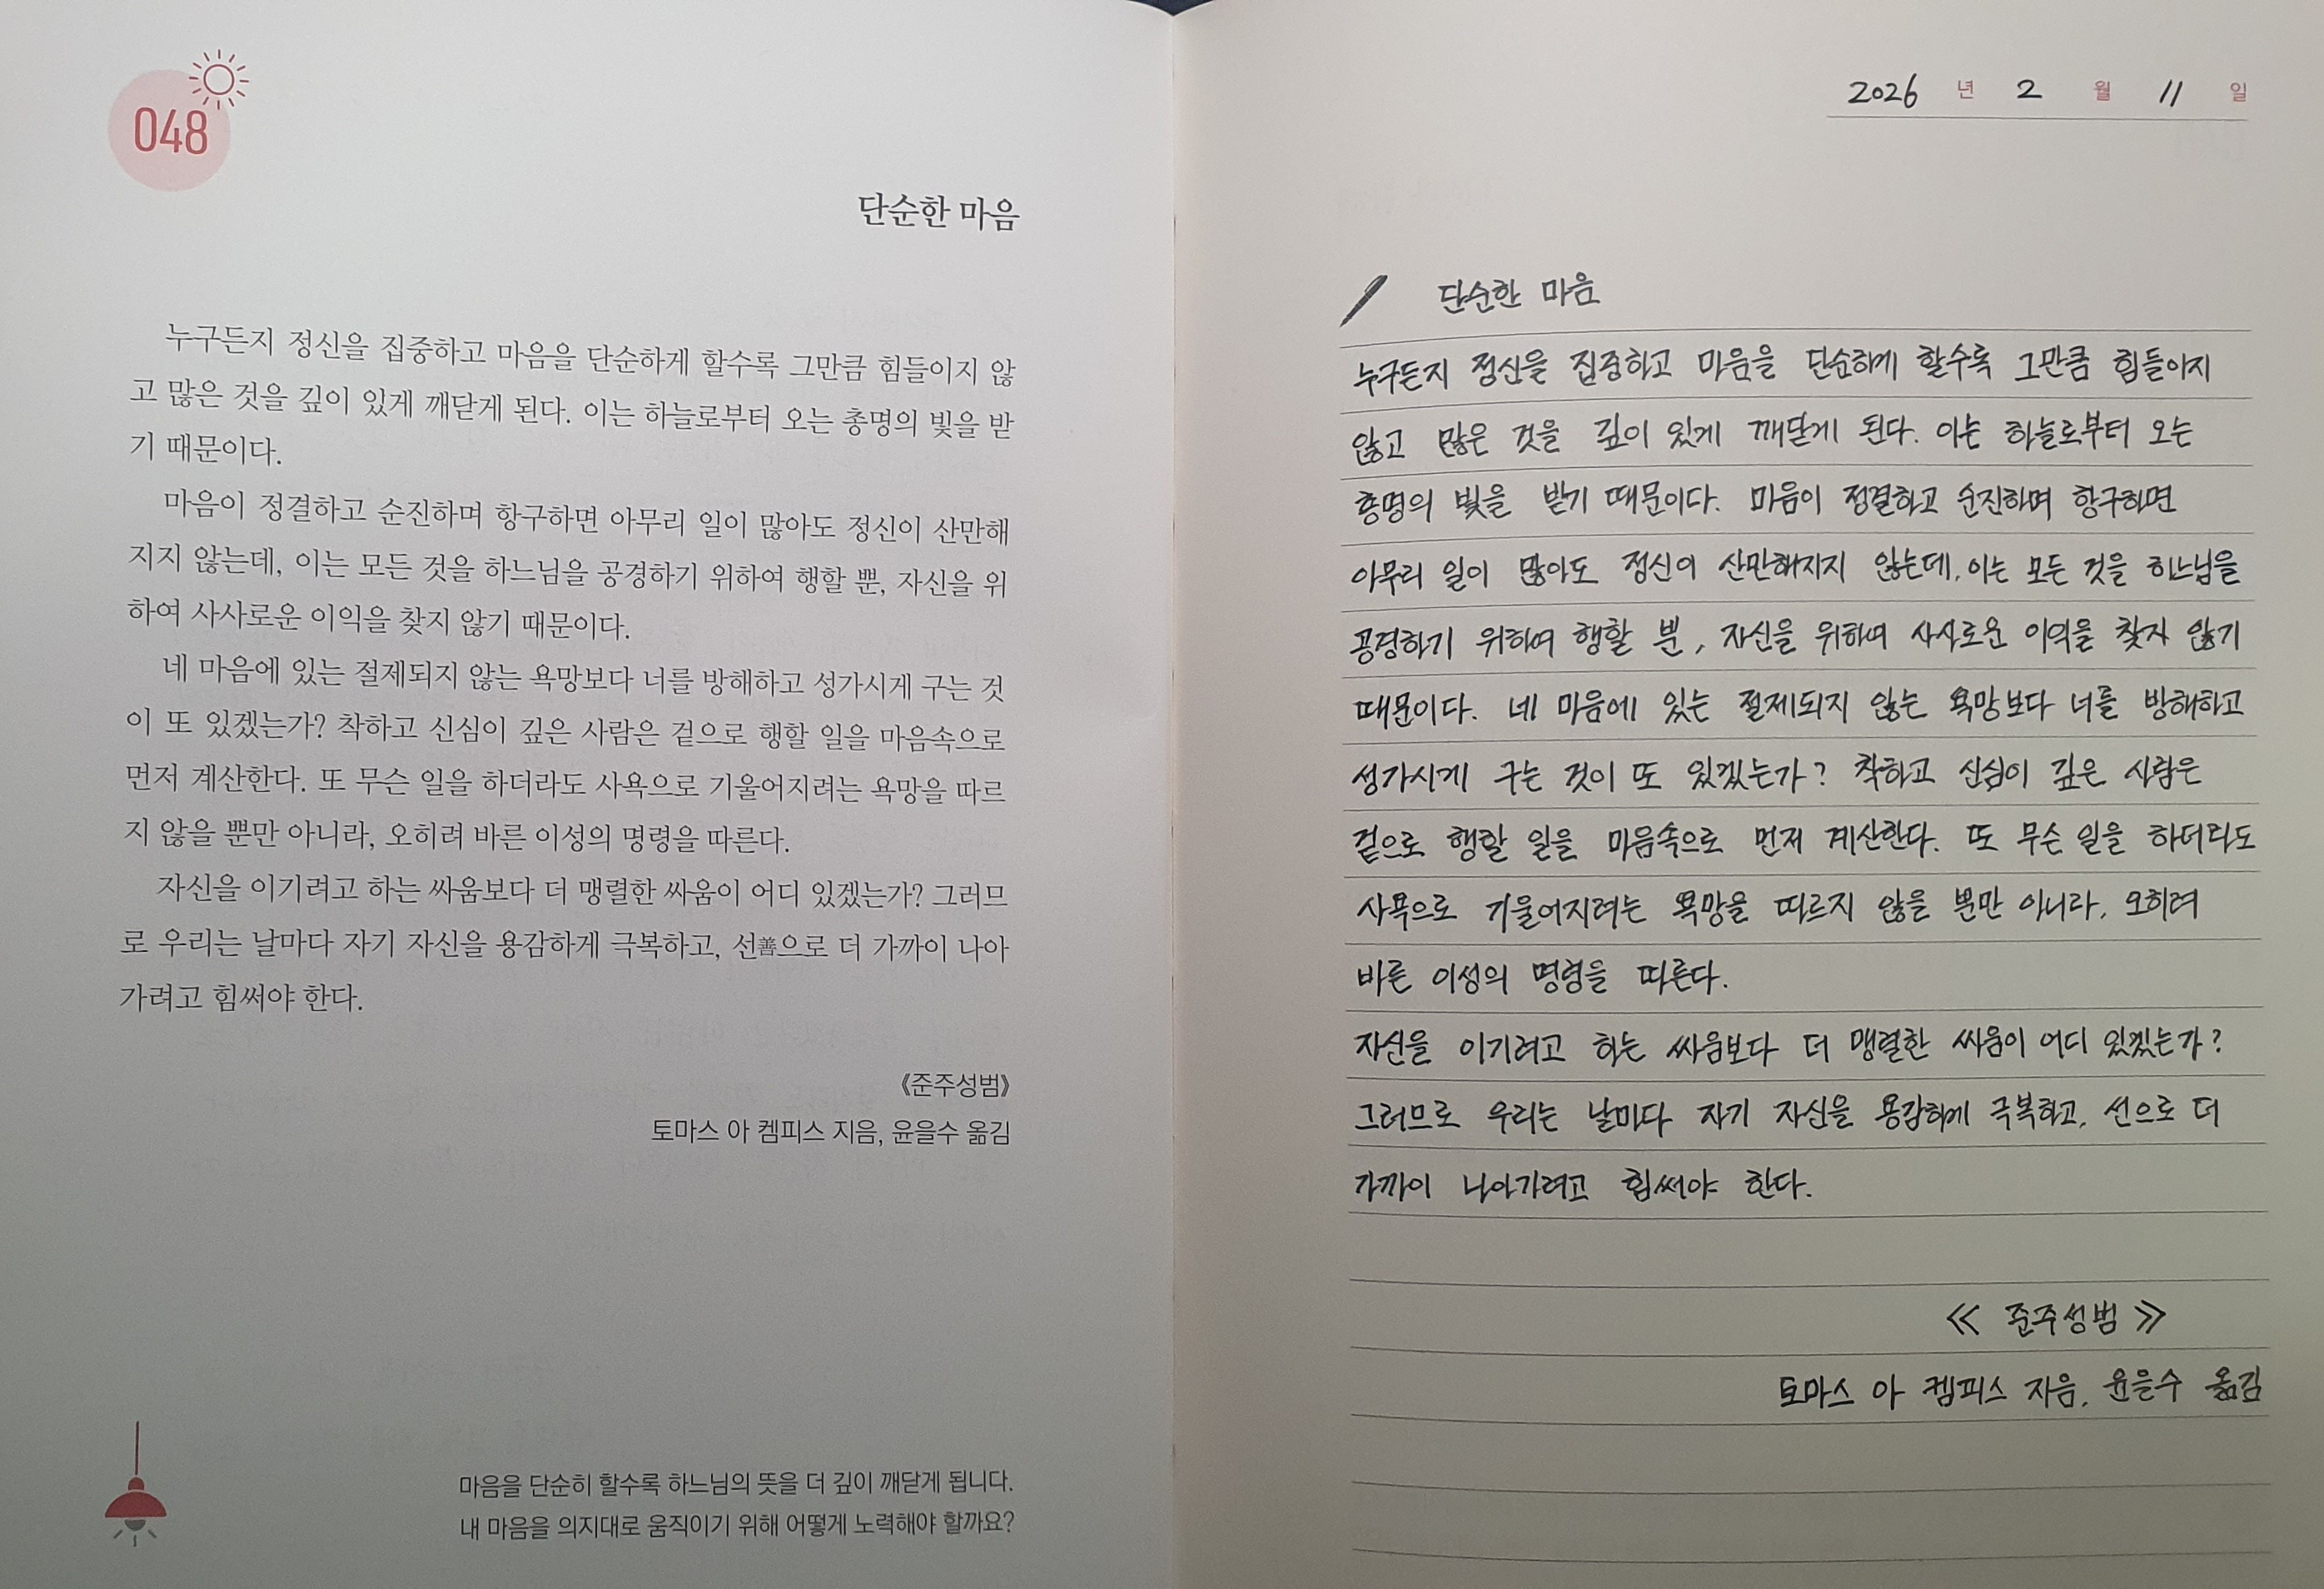 048
단순한 마음
누구든지 정신을 집중하고 마음을 단순하게 할수록 그만큼 힘들이지 않
고 많은 것을 깊이 있게 깨닫게 된다. 이는 하늘로부터 오는 총명의 빛을 받
기 때문이다.
마음이 정결하고 순진하며 항구하면 아무리 일이 많아도 정신이 산만해
지지 않는데, 이는 모든 것을 하느님을 공경하기 위하여 행할 뿐, 자신을 위
하여 사사로운 이익을 찾지 않기 때문이다.
네 마음에 있는 절제되지 않는 욕망보다 너를 방해하고 성가시게 구는 것
이 또 있겠는가? 착하고 신심이 깊은 사람은 겉으로 행할 일을 마음속으로
먼저 계산한다. 또 무슨 일을 하더라도 사욕으로 기울어지려는 욕망을 따르
지 않을 뿐만 아니라, 오히려 바른 이성의 명령을 따른다.
자신을 이기려고 하는 싸움보다 더 맹렬한 싸움이 어디 있겠는가? 그러므
로 우리는 날마다 자기 자신을 용감하게 극복하고, 선善으로 더 가까이 나아
가려고 힘써야 한다.
《준주성범》
토마스 아 켐피스 지음, 윤을수 옮김
마음을 단순히 할수록 하느님의 뜻을 더 깊이 깨닫게 됩니다.
내 마음을 의지대로 움직이기 위해 어떻게 노력해야 할까요?
2026 년 2 월 11 일
단순한 마음
누구든지 정신을 집중하고 마음을 단순하게 할수록 그만큼 힘들이지
않고 많은 것을 깊이 있게 깨닫게 된다. 이는 하늘로부터 오는
총명의 빛을 받기 때문이다. 마음이 정결하고 순진하며 항구하면
아무리 일이 많아도 정신이 산만해지지 않는데, 이는 모든 것을 하느님을
공경하기 위하여 행할 뿐, 자신을 위하여 사사로운 이익을 찾지 않기
때문이다. 네 마음에 있는 절제되지 않는 욕망보다 너를 방해하고
성가시게 구는 것이 또 있겠는가? 착하고 신심이 깊은 사람은
겉으로 행할 일을 마음속으로 먼저 계산한다. 또 무슨 일을 하더라도
사욕으로 기울어지려는 욕망을 따르지 않을 뿐만 아니라, 오히려
바른 이성의 명령을 따른다.
자신을 이기려고 하는 싸움보다 더 맹렬한 싸움이 어디 있겠는가?
그러므로 우리는 날마다 자기 자신을 용감하게 극복하고, 선으로 더
가까이 나아가려고 힘써야 한다.
≪ 준주성범 ≫
토마스 아 켐피스 지음, 윤을수 옮김